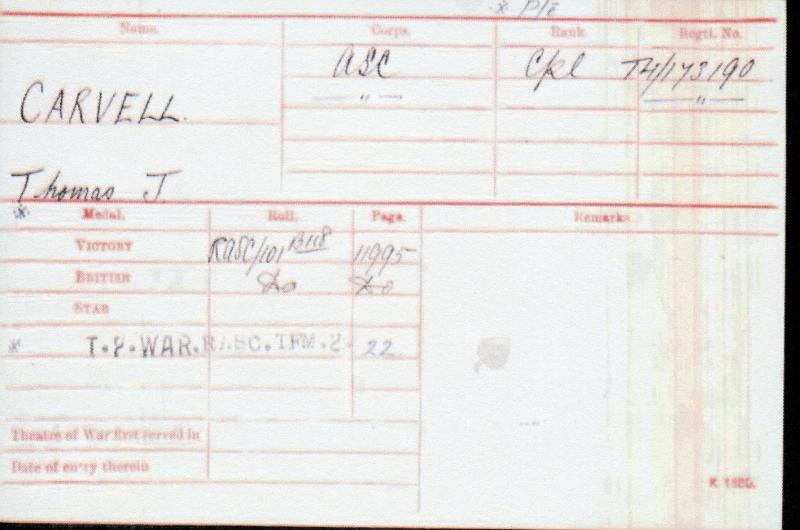 * P/2
Name. Corps. Rank. Regtl. No.
ASC Cpl T4/173190
CARVELL. — " — — " —
Thomas J.
* Medal. Roll. Page. Remarks
VICTORY RASC/101 B118 11995
BRITISH Do Do
STAR
* T.F.WAR.RASC.TFM.2. 22
Theatre of War first served in
Date of entry therein
K 1380.